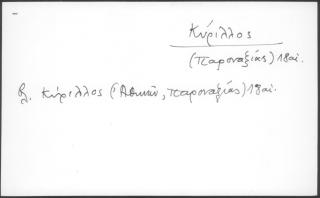 Κύριλλος
(Παροναξίας) 18αι.
βλ. Κύριλλος (Ἀθηνῶν, Παροναξίας) 18αι.